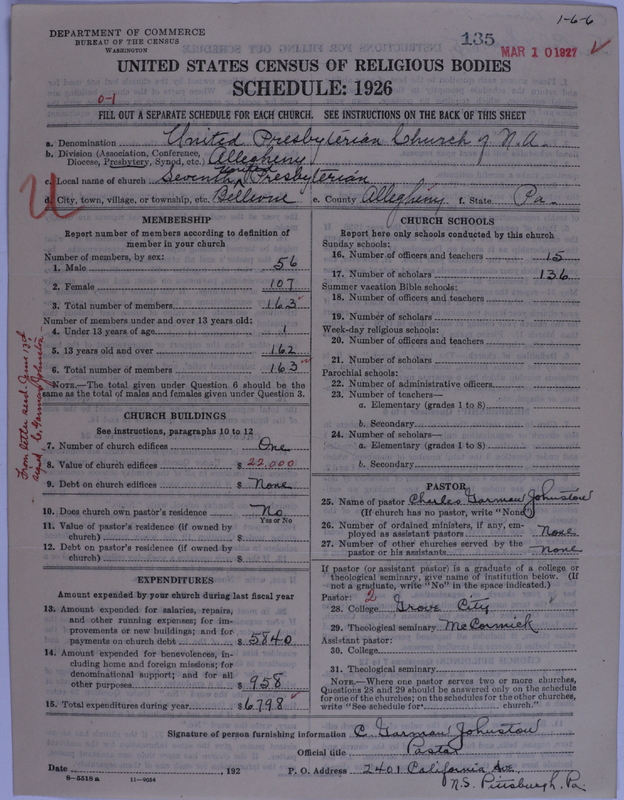 1-6-6
DEPARTMENT OF COMMERCE
BUREAU OF THE CENSUS
WASHINGTON
135
MAR 10 1927
UNITED STATES CENSUS OF RELIGIOUS BODIES
SCHEDULE: 1926
0-1
FILL OUT A SEPARATE SCHEDULE FOR EACH CHURCH. SEE INSTRUCTIONS ON THE BACK OF THIS SHEET
a. Denomination United Presbyterian Church of N.A.
b. Division (Association, Conference, Diocese, Presbytery, Synod, etc.) Allegheny
c. Local name of church Seventh United Presbyterian
d. City, town, village, or township, etc. Bellevue e. County Allegheny f. State Pa.
MEMBERSHIP
Report number of members according to definition of
member in your church
Number of members, by sex:
1. Male 56
2. Female 107
3. Total number of members 163
Number of members under and over 13 years old:
4. Under 13 years of age 1
5. 13 years old and over 162
6. Total number of members 163
NOTE.—The total given under Question 6 should be the
same as the total of males and females given under Question 3.
From letter recd June 13th
signed C. Garman Johnston
CHURCH BUILDINGS
See instructions, paragraphs 10 to 12
7. Number of church edifices One
8. Value of church edifices $ 22,000
9. Debt on church edifices $ None
10. Does church own pastor's residence No
Yes or No
11. Value of pastor's residence (if owned by
church) $
12. Debt on pastor's residence (if owned by
church) $
EXPENDITURES
Amount expended by your church during last fiscal year
13. Amount expended for salaries, repairs,
and other running expenses; for im-
provements or new buildings; and for
payments on church debt $ 5840
14. Amount expended for benevolences, in-
cluding home and foreign missions; for
denominational support; and for all
other purposes $ 958
15. Total expenditures during year $ 6798
CHURCH SCHOOLS
Report here only schools conducted by this church
Sunday schools:
16. Number of officers and teachers 15
17. Number of scholars 136
Summer vacation Bible schools:
18. Number of officers and teachers
19. Number of scholars
Week-day religious schools:
20. Number of officers and teachers
21. Number of scholars
Parochial schools:
22. Number of administrative officers
23. Number of teachers—
a. Elementary (grades 1 to 8)
b. Secondary
24. Number of scholars—
a. Elementary (grades 1 to 8)
b. Secondary
PASTOR
25. Name of pastor Charles Garman Johnston
(If church has no pastor, write "None")
26. Number of ordained ministers, if any, em-
ployed as assistant pastors None
27. Number of other churches served by the
pastor or his assistants None
If pastor (or assistant pastor) is a graduate of a college or
theological seminary, give name of institution below. (If
not a graduate, write "No" in the space indicated.)
Pastor: 2
28. College Grove City
29. Theological seminary McCormick
Assistant pastor:
30. College
31. Theological seminary
NOTE.—Where one pastor serves two or more churches,
Questions 28 and 29 should be answered only on the schedule
for one of the churches; on the schedules for the other churches,
write "See schedule for church."
Signature of person furnishing information C. Garman Johnston
Official title Pastor
Date , 192 P. O. Address 2401 California Ave.
8-5518a 11-9054 N.S. Pittsburgh, Pa.